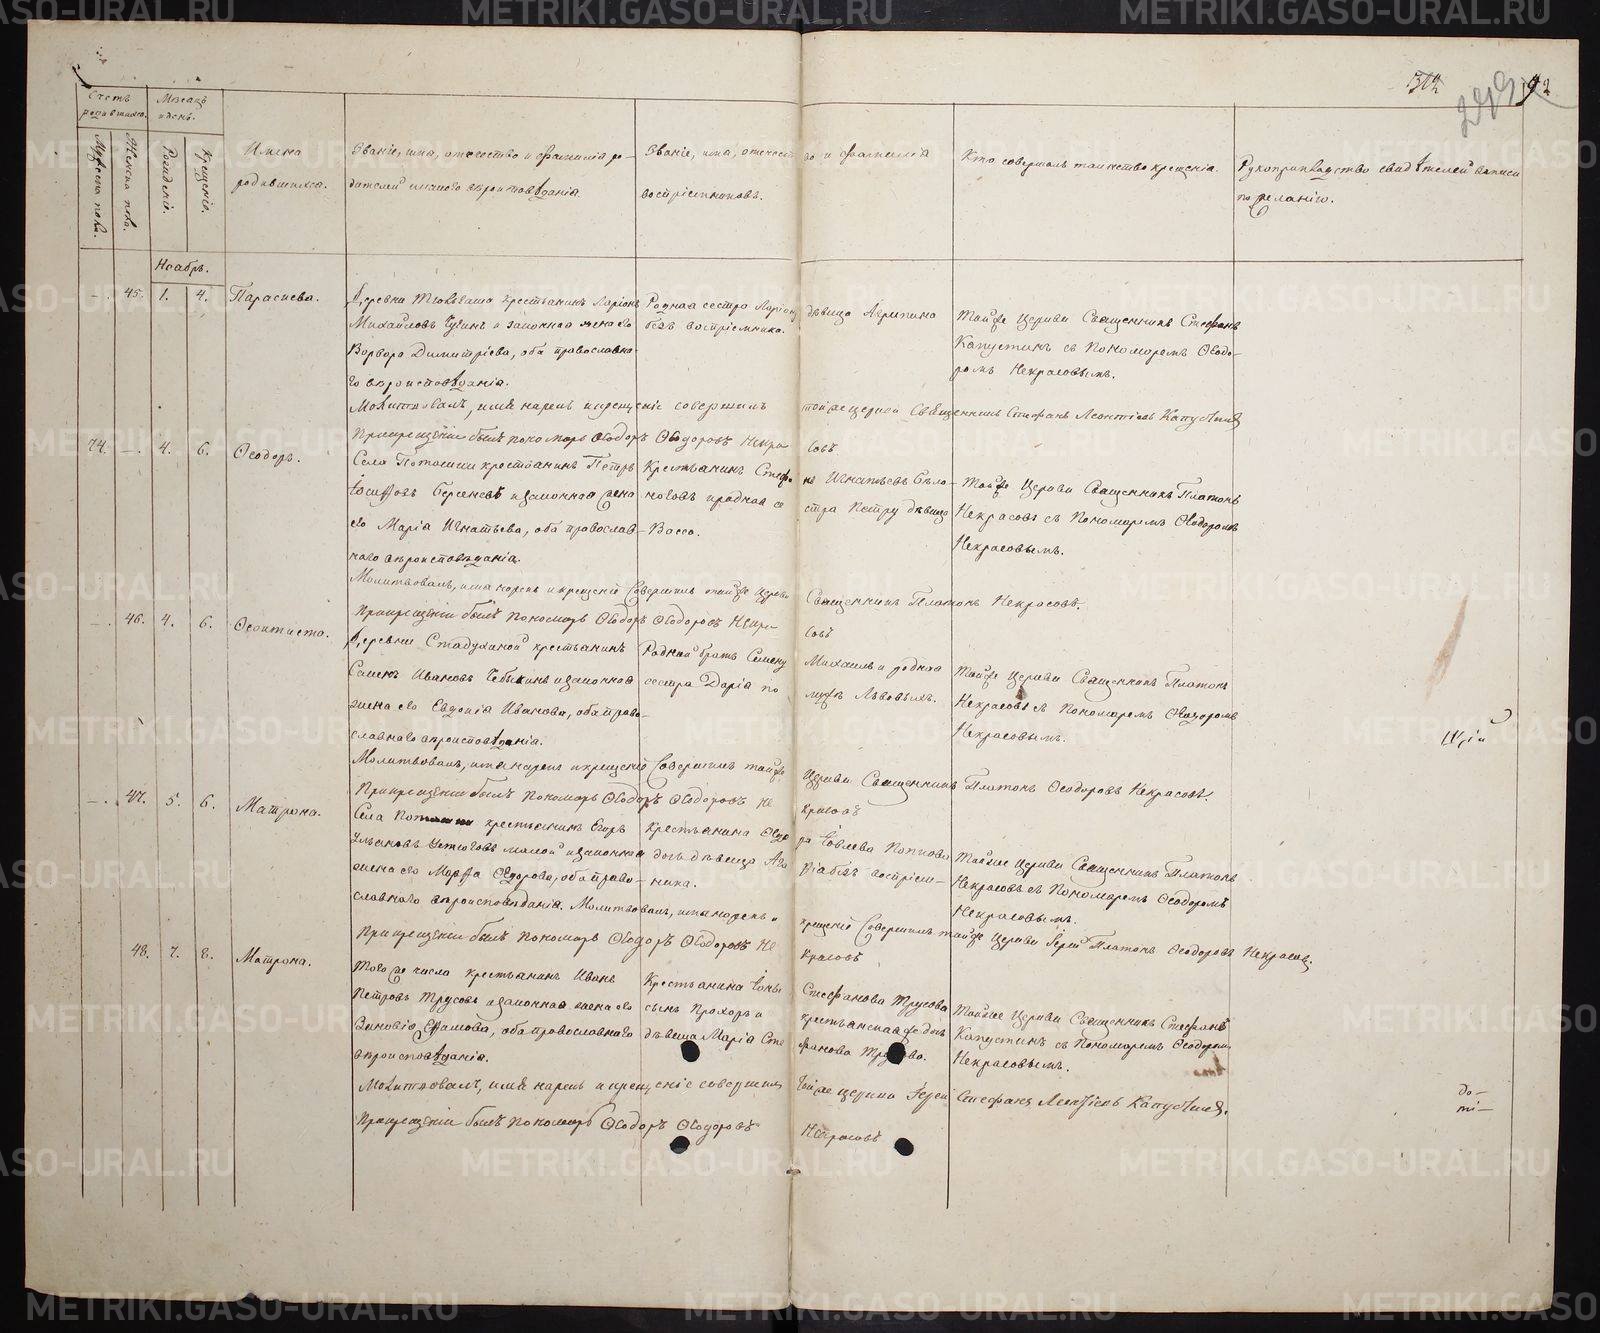 312 292
Счетъ родившихся. Месяцъ и день.
Мужеска пола. Женска пола. Рожденія. Крещенія.
Имена родившихся.
Званіе, имя, отечество и фамилія родителей и какого вероисповѣданія.
Званіе, имя, отечество и фамилія воспріемниковъ.
Кто совершалъ таинство крещенія.
Рукоприкладство свидѣтелей записи по желанію.
Ноябрь.
45. 1. 4. Параскева.
Деревни крестьянинъ Ларіонъ
Михайловъ и законная жена его
Варвара Димитріева, оба православна-
го вероисповѣданія.
Родная сестра Ларіону дѣвица Агрипина
безъ воспріемника.
Тойже Церкви Священникъ Стефанъ
Капустинъ съ Пономаремъ Ѳеодо-
ромъ Некрасовымъ.
Молитвовалъ, имя нарекъ и крещеніе совершилъ тойже церкви Священникъ Стефанъ Леонтіевъ Капустинъ
При крещеніи былъ пономарь Ѳеодоръ Ѳеодоровъ Некрасовъ
74. 4. 6. Ѳеодоръ.
Села крестьянинъ Петръ
и законная жена
его Марія Игнатьева, оба православ-
наго вероисповѣданія.
Крестьянинъ Стефанъ Игнатьевъ
и родная сестра Петру дѣвица
Васса.
Тойже Церкви Священникъ Платонъ
Некрасовъ съ Пономаремъ Ѳеодоромъ
Некрасовымъ.
Молитвовалъ, имя нарекъ и крещеніе Совершилъ тойже Церкви Священникъ Платонъ Некрасовъ.
При крещеніи былъ Пономарь Ѳеодоръ Ѳеодоровъ Некрасовъ
46. 4. 6. Ѳеоктиста.
Деревни Стадухиной крестьянинъ
Семенъ Ивановъ и законная
жена его Евдокія Иванова, оба право-
славнаго вероисповѣданія.
Родный братъ Семену Михаилъ и родная
сестра Дарія по мужѣ Львовыхъ.
Тойже Церкви Священникъ Платонъ
Некрасовъ съ Пономаремъ Ѳеодоромъ
Некрасовымъ.
Молитвовалъ, имя нарекъ и крещеніе Совершилъ тойже Церкви Священникъ Платонъ Ѳеодоровъ Некрасовъ.
При крещеніи былъ Пономарь Ѳеодоръ Ѳеодоровъ Некрасовъ
47. 5. 6. Матрона.
Села крестьянинъ Егоръ
и законная
жена его Марѳа Ѳедорова, оба право-
славнаго вероисповѣданія. Молитвовалъ, имя нарекъ и крещеніе Совершилъ тойже Церкви Іерей Платонъ Ѳеодоровъ Некрасовъ.
Крестьянина
дочь дѣвица безъ воспріем-
ника.
Тойже Церкви Священникъ Платонъ
Некрасовъ съ Пономаремъ Ѳеодоромъ
Некрасовымъ.
При крещеніи былъ Пономарь Ѳеодоръ Ѳеодоровъ Некрасовъ
48. 7. 8. Матрона.
Того же числа крестьянинъ Иванъ
Петровъ Трусовъ и законная жена его
Зиновія оба православнаго
вероисповѣданія.
Крестьянина Стефанова Трусова
сынъ Прохоръ и крестьянская же дочь
дѣвица Марія Стефанова Трусова.
Тойже Церкви Священникъ Стефанъ
Капустинъ съ Пономаремъ Ѳеодоромъ
Некрасовымъ.
Молитвовалъ, имя нарекъ и крещеніе совершилъ тойже церкви Іерей Стефанъ Леонтіевъ Капустинъ.
При крещеніи былъ пономарь Ѳеодоръ Ѳеодоровъ Некрасовъ
METRIKI.GASO-URAL.RU